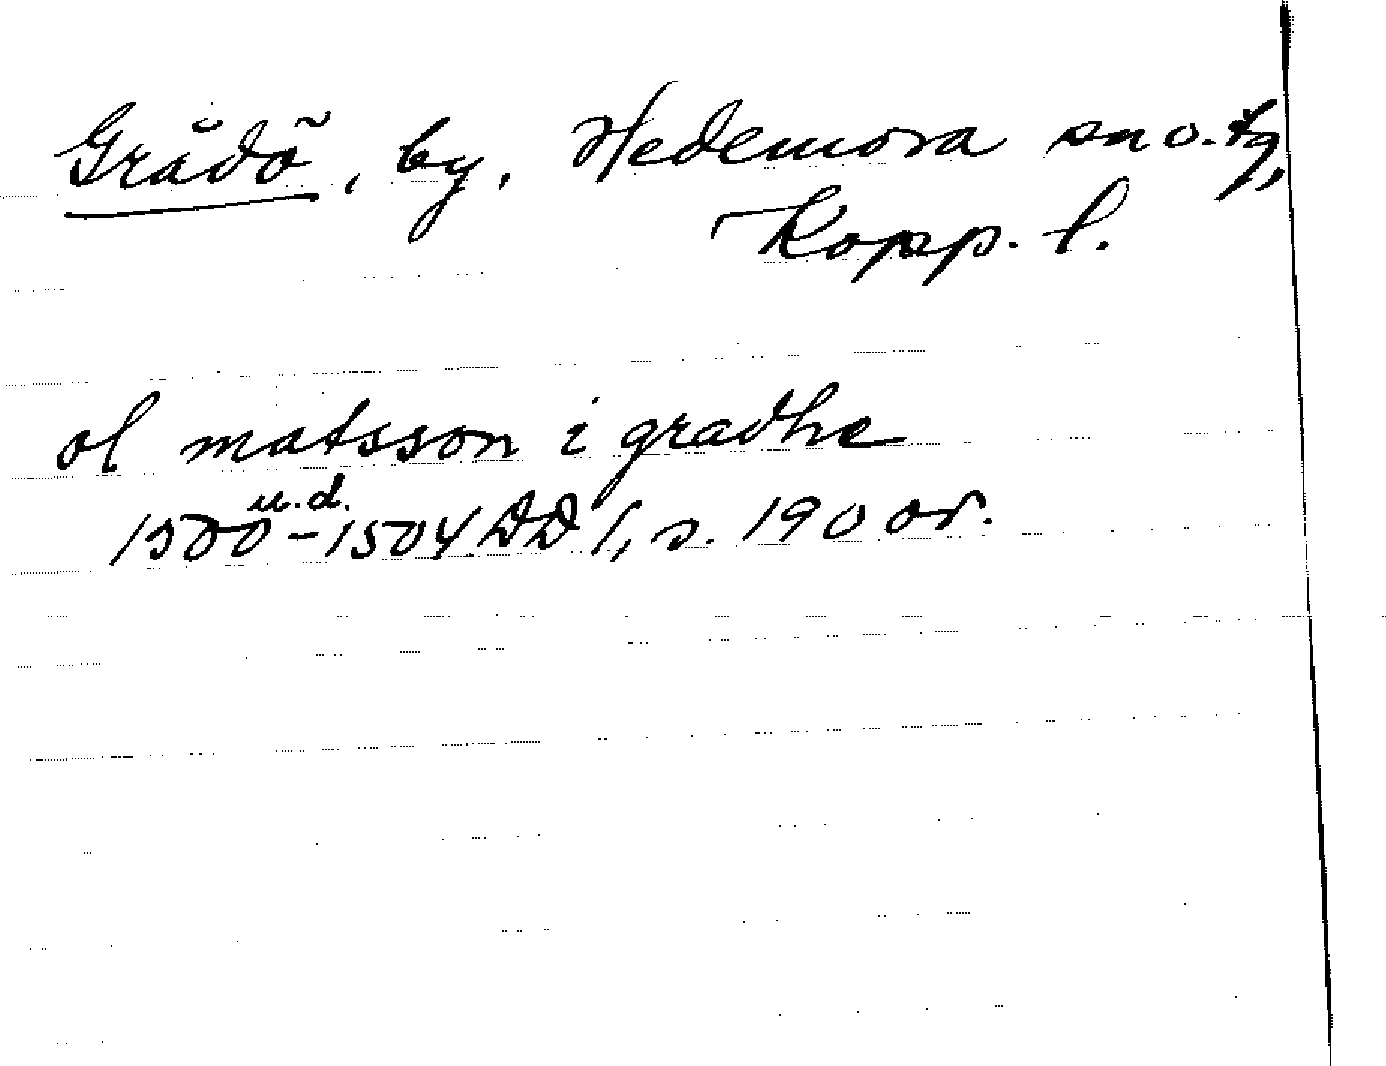 Grådö, by, Hedemora sn o. tg,
Kopp. l.
ol matsson i gradhe
u.d.
1500-1504 DD 1, s. 190 or.